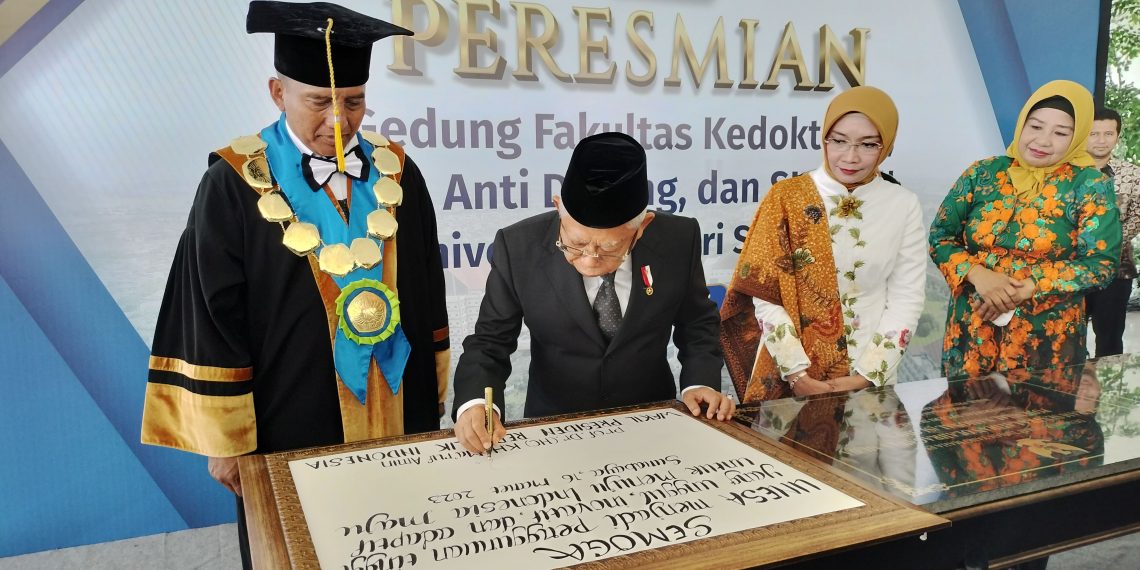 PERESMIAN
Gedung Fakultas Kedokt
Anti dan
SEMOGA UNESA
menjadi perguruan tingg
yang unggul, inovatif, dan adaptif
untuk menuju Indonesia Maju
Surabaya, 16 Maret 2023
Prof. Dr. (HC) KH. Ma'ruf Amin
WAKIL PRESIDEN RE LIK INDONESIA